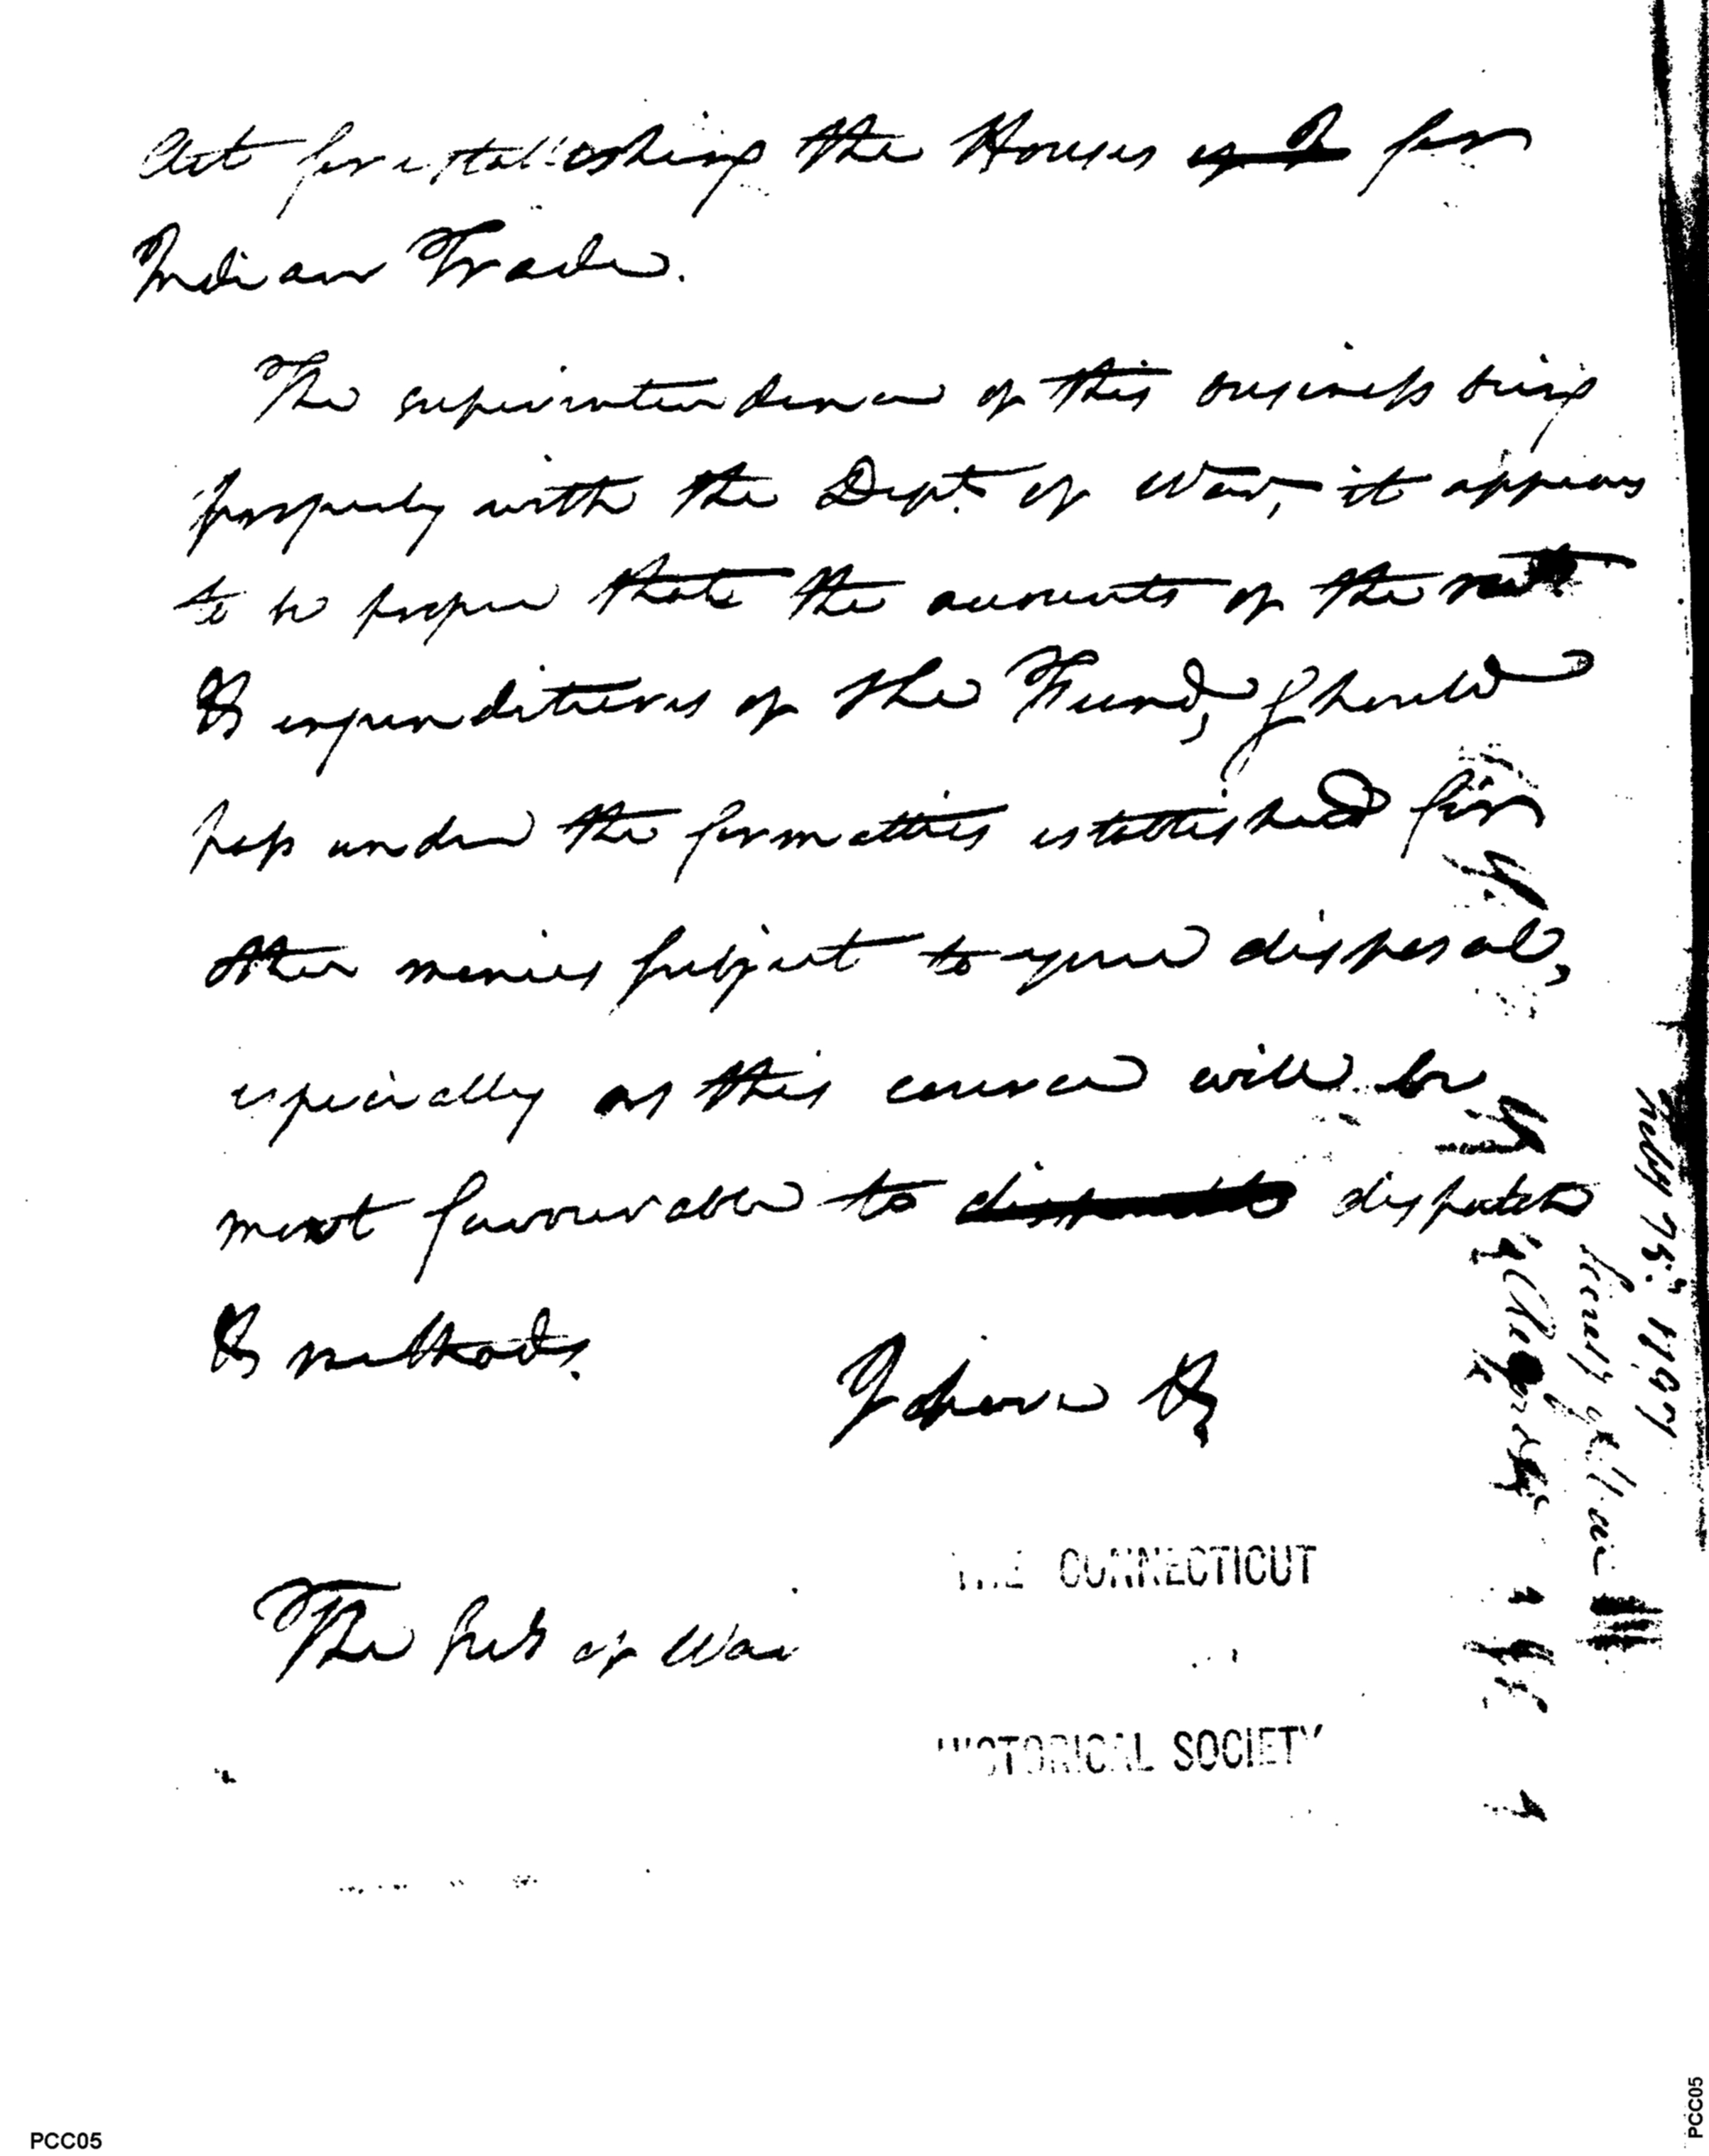 Act for establishing the Houses for
Indian Trade.
The superintendence of this business being
properly with the Dept. of War, it appears
to be proper that the accounts of the
& expenditures of the Fund, should
pass under the formalities established for
other monies subject to your disposal,
especially as this course will be
most favourable to dispatch
& method.
I have &
THE CONNECTICUT
The Sec'y of War
HISTORICAL SOCIETY
July 1797
Secy of War
PCC05
PCC05